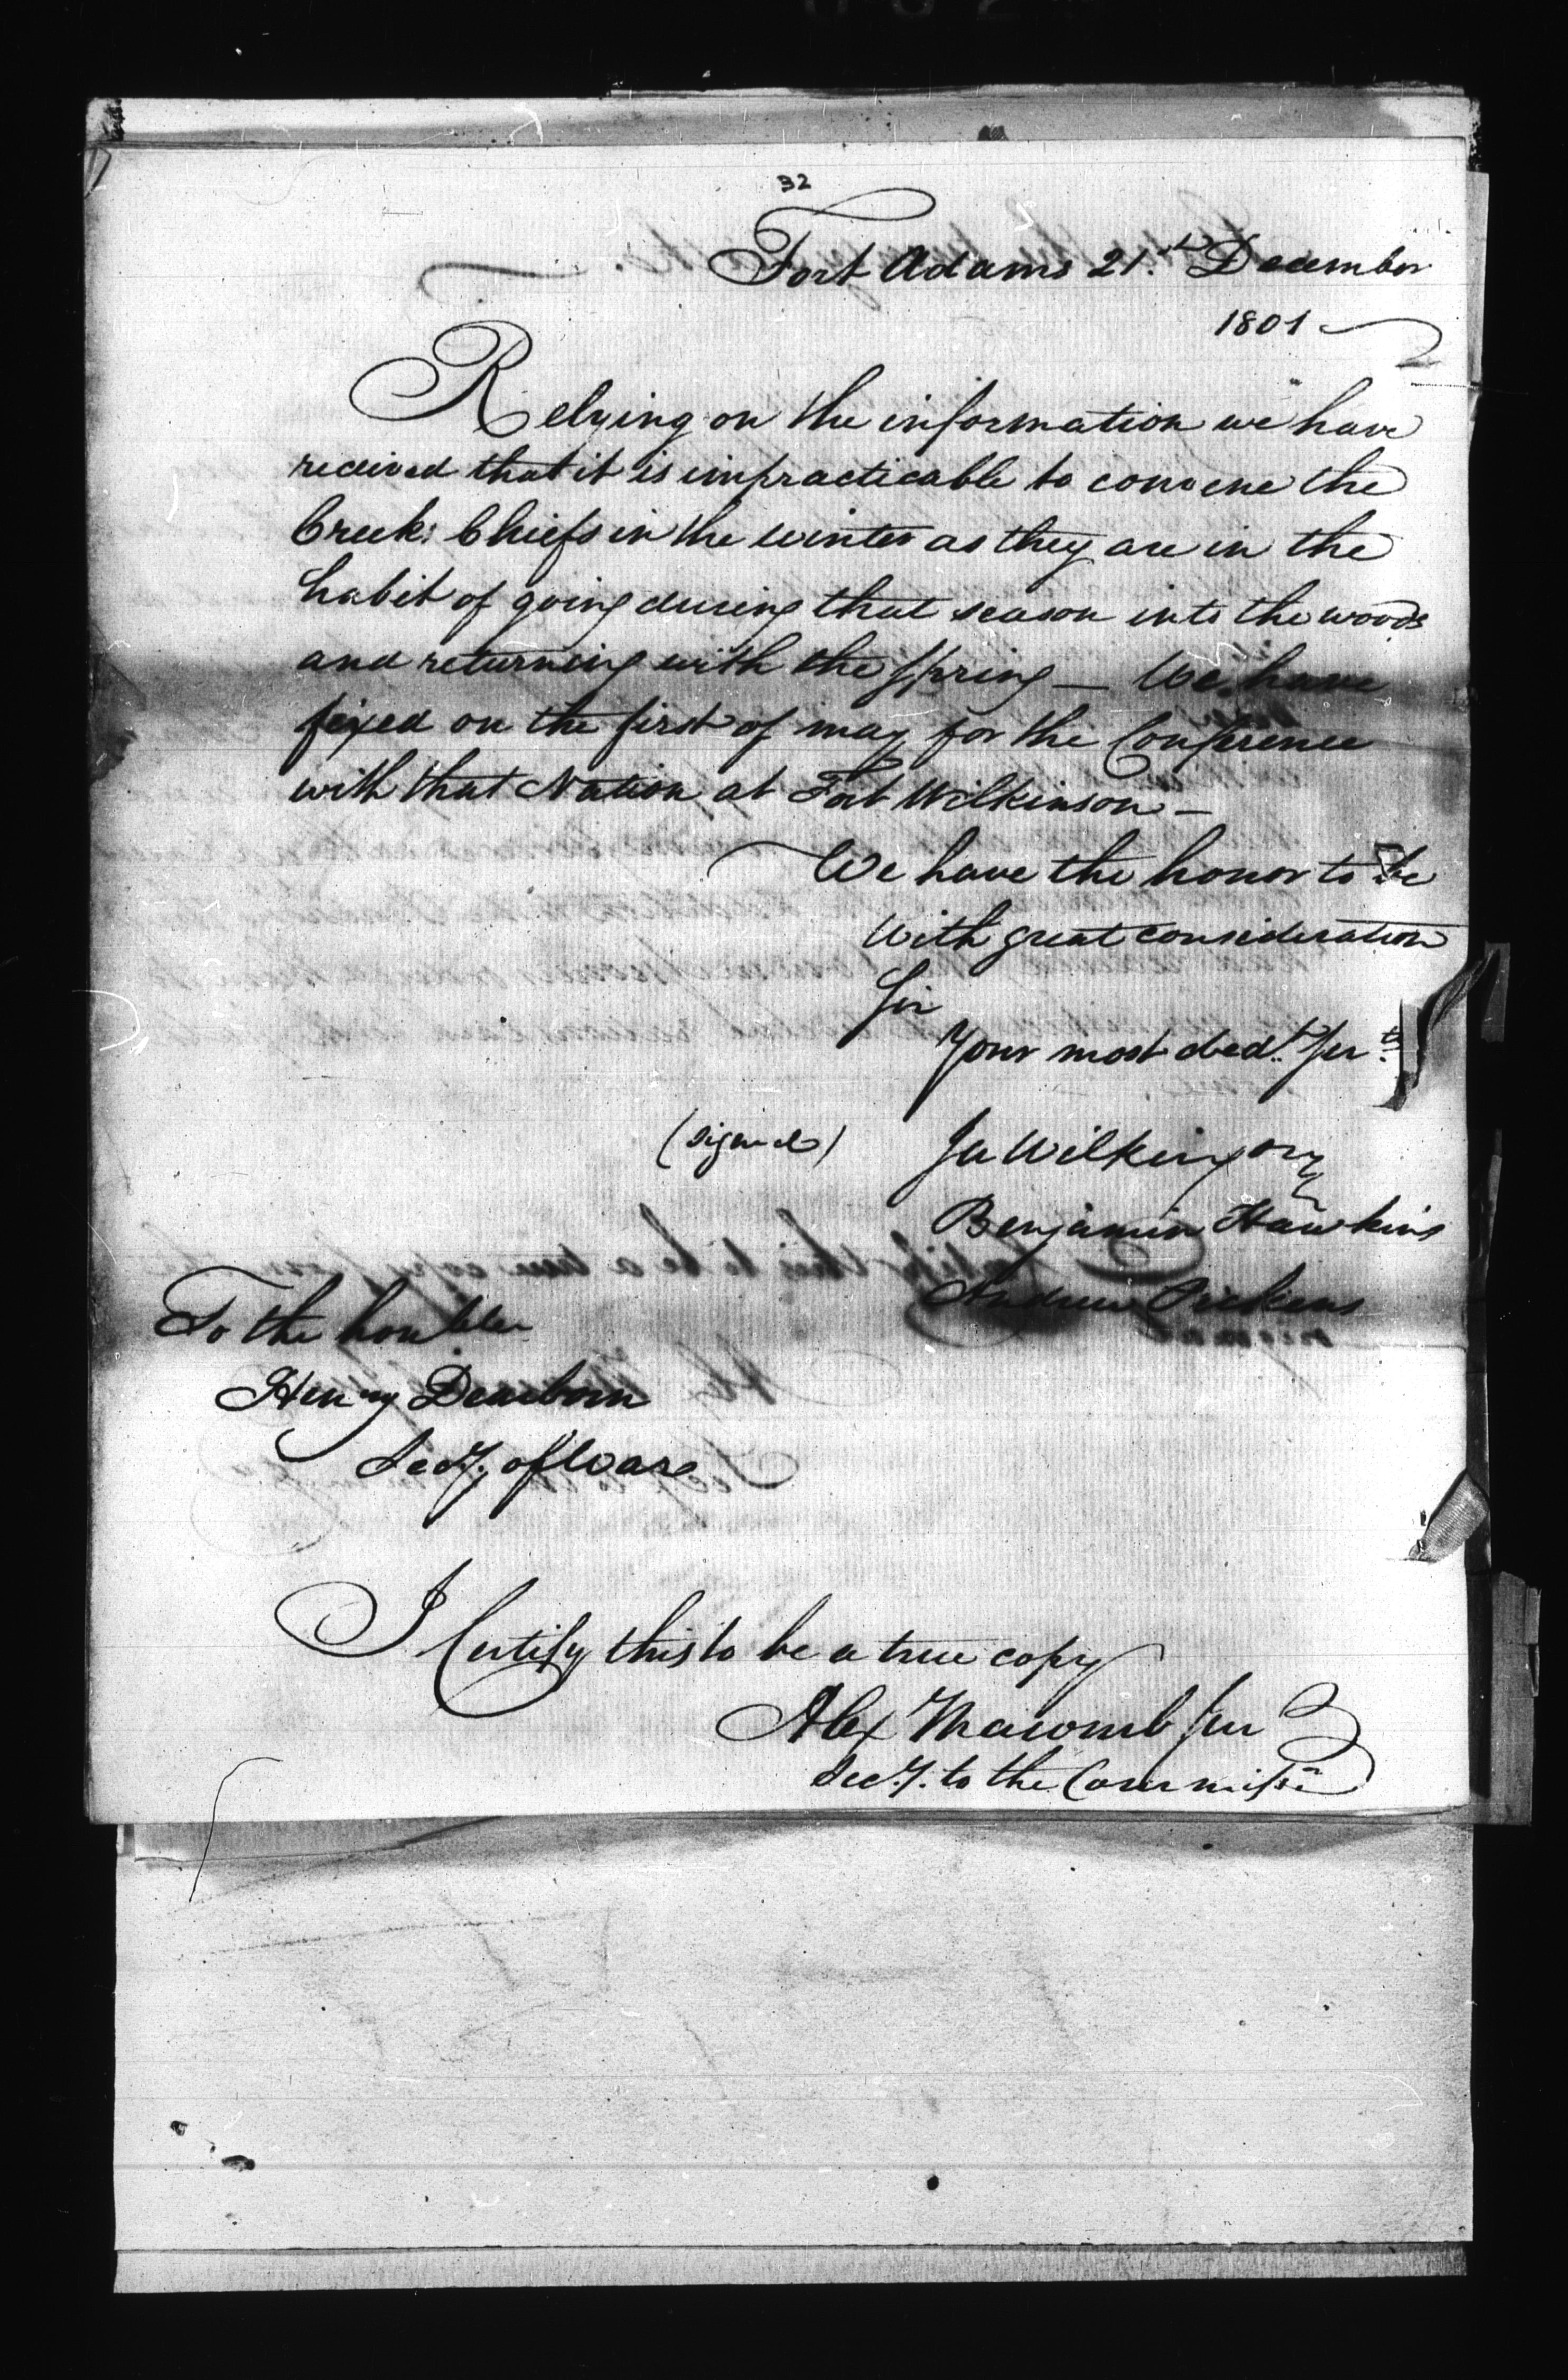 32
Fort Adams 21st December
1801
Relying on the information we have
received that it is impracticable to convene the
Creek Chiefs in the winter as they are in the
habit of going during that season into the woods
and returning with the spring — We have
fixed on the first of may for the Conference
with that Nation at Fort Wilkinson —
We have the honor to be
With great consideration
Sir
Your most obedt. Serts.
(signed) Ja Wilkinson
Benjamin Hawkins
Andrew Pickens
To the honbler
Henry Dearborn
Secy. of Ware
I Certify this to be a true copy
Alex Macomb Jun
Secy. to the Commissn